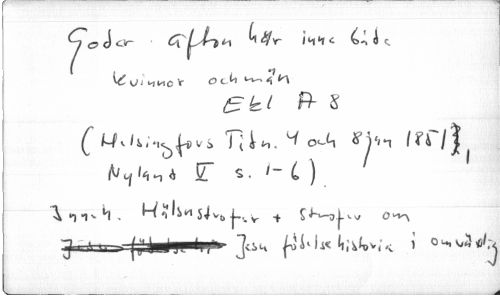 Goder afton här inne både
kvinnor och män
Ekl A 8
(Helsingfors Tidn. 4 och 8 jan 1851,
Nyland V s. 1-6)
Inneh. Hälsostrofer + strofer om
Jesu födelsehistoria i omvändig